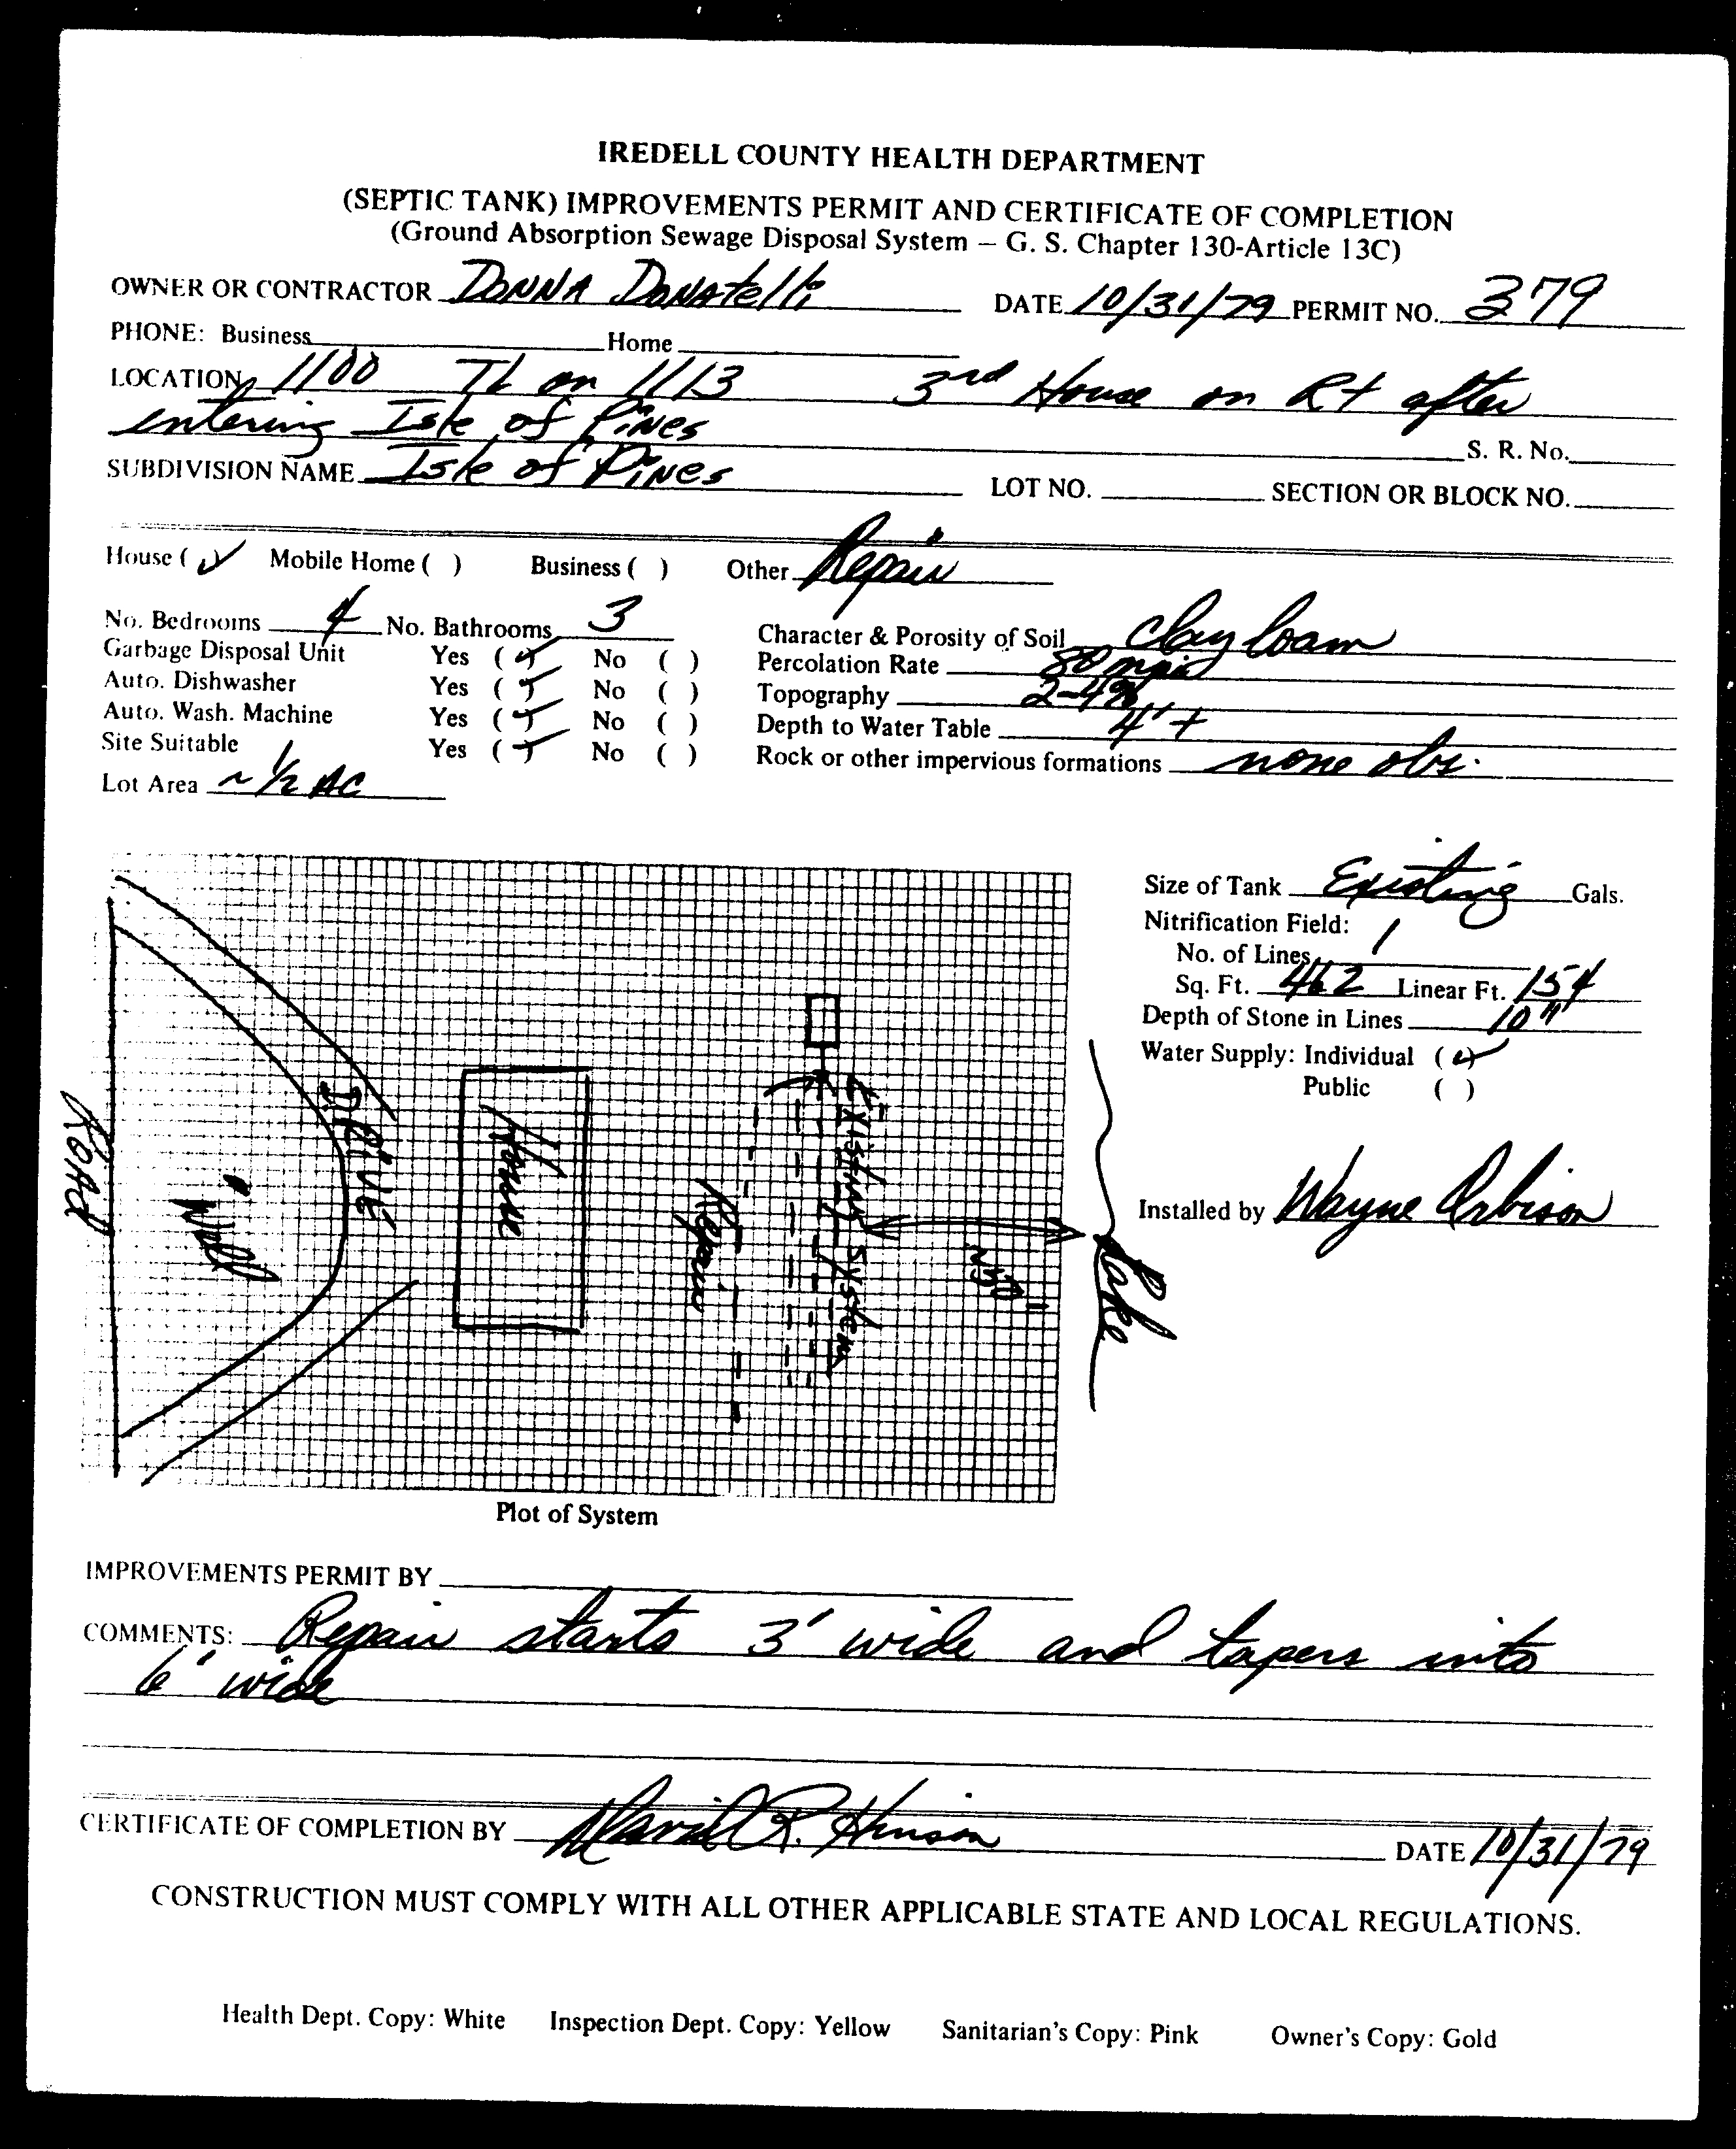 IREDELL COUNTY HEALTH DEPARTMENT
(SEPTIC TANK) IMPROVEMENTS PERMIT AND CERTIFICATE OF COMPLETION
(Ground Absorption Sewage Disposal System – G. S. Chapter 130-Article 13C)
OWNER OR CONTRACTOR DONNA DONATelli DATE 10/31/79 PERMIT NO. 379
PHONE: Business Home
LOCATION 1100 TL on 1113 3rd House on Rt after
entering Isle of Pines S. R. No.
SUBDIVISION NAME Isle of Pines LOT NO. SECTION OR BLOCK NO.
House (✓) Mobile Home ( ) Business ( ) Other Repair
No. Bedrooms 4 No. Bathrooms 3 Character & Porosity of Soil Clay loam
Garbage Disposal Unit Yes (✓) No ( ) Percolation Rate 80 mpi
Auto. Dishwasher Yes (✓) No ( ) Topography 2-4%
Auto. Wash. Machine Yes (✓) No ( ) Depth to Water Table 4'+
Site Suitable Yes (✓) No ( ) Rock or other impervious formations none obs.
Lot Area ~ 1/2 AC
Size of Tank Existing Gals.
Nitrification Field:
No. of Lines 1
Sq. Ft. 462 Linear Ft. 154
Depth of Stone in Lines 10"
Water Supply: Individual (✓)
Public ( )
Installed by Wayne Orbison
Road
Well
DRIVE
House
Repair
Existing System
Lake
Plot of System
IMPROVEMENTS PERMIT BY
COMMENTS: Repair starts 3' wide and tapers into
6' wide
CERTIFICATE OF COMPLETION BY David R. Hinson DATE 10/31/79
CONSTRUCTION MUST COMPLY WITH ALL OTHER APPLICABLE STATE AND LOCAL REGULATIONS.
Health Dept. Copy: White Inspection Dept. Copy: Yellow Sanitarian's Copy: Pink Owner's Copy: Gold